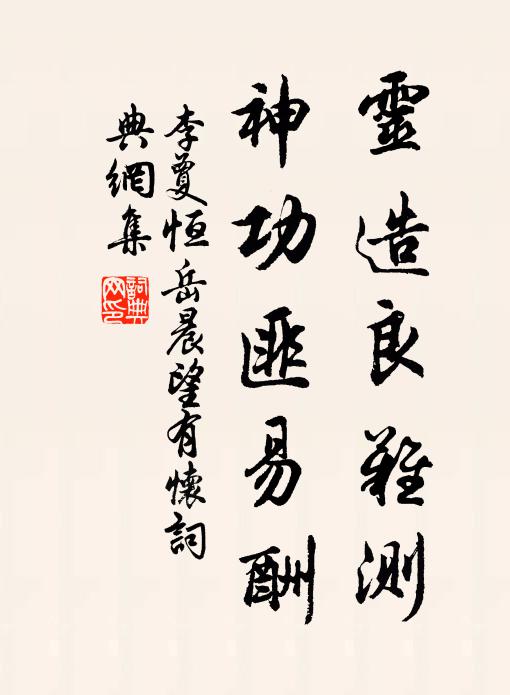 靈造良難測
神功匪易酬
李夐恒岳晨望有懷詞
典網集
詞典
网印